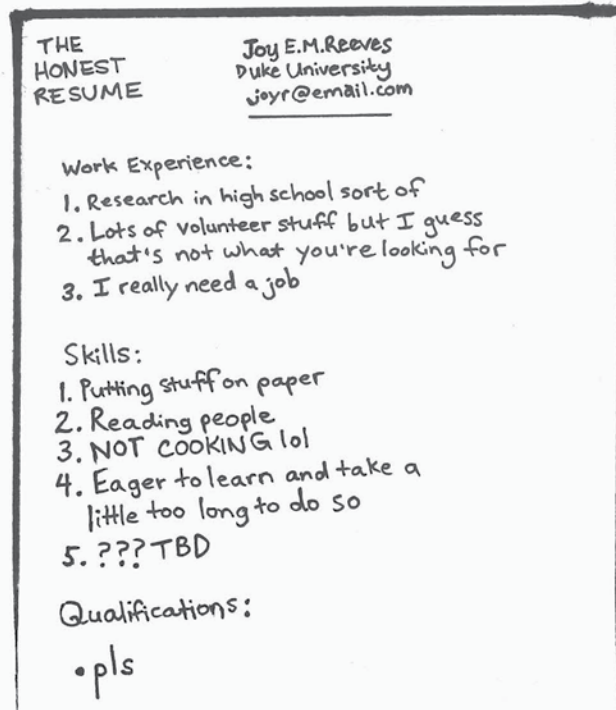 THE
HONEST
RESUME
Joy E.M.Reeves
Duke University
joyr@email.com
Work Experience:
1. Research in high school sort of
2. Lots of volunteer stuff but I guess
that's not what you're looking for
3. I really need a job
Skills:
1. Putting stuff on paper
2. Reading people
3. NOT COOKING lol
4. Eager to learn and take a
little too long to do so
5. ??? TBD
Qualifications:
• pls